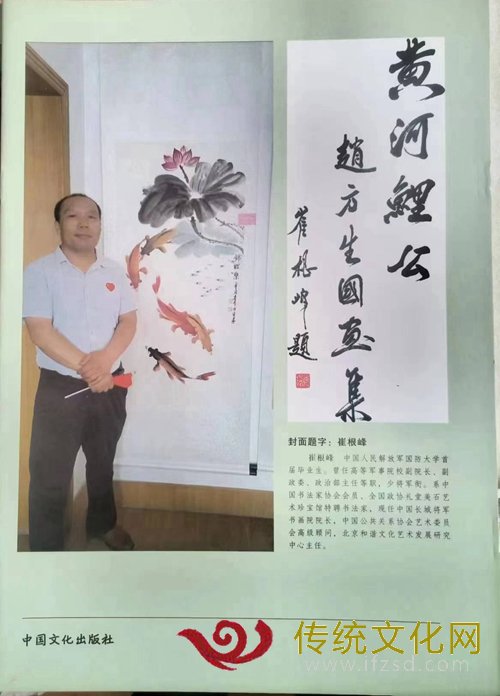 黄河鲤公
趙方生國画集
崔根峰題
封面题字：崔根峰
崔根峰 中国人民解放军国防大学首
届毕业生。曾任高等军事院校副院长、副
政委、政治部主任等职，少将军衔。系中
国书法家协会会员、全国政协礼堂美石艺
术珍宝馆特聘书法家，现任中国长城将军
书画院院长，中国公共关系协会艺术委员
会高级顾问，北京和谐文化艺术发展研究
中心主任。
中国文化出版社
传统文化网
www.ifzsd.com